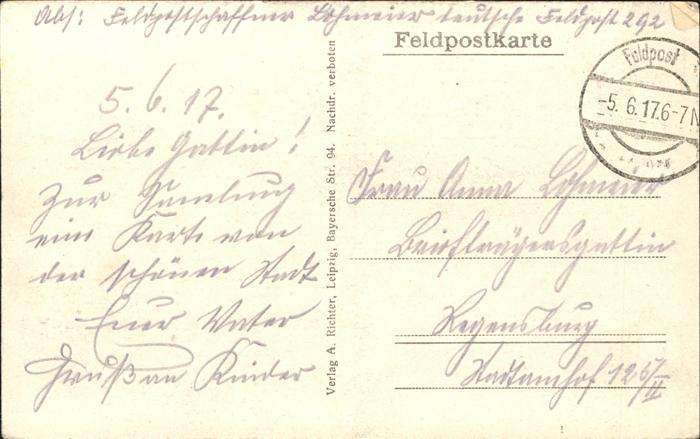 Abs: Feldpostschaffner Lohmeier deutsche Feldpost 292
Feldpostkarte
Feldpost
-5. 6. 17. 6-7 N
5. 6. 17.
Liebe Gattin!
Zur Samlung
eine Karte von
der schönen Stadt
Euer Vater
Gruß an Kinder
Verlag A. Richter, Leipzig, Bayersche Str. 94. Nachdr. verboten
Frau Anna Lohmeier
Briefträgersgattin
Regensburg
Stadtamhof 12